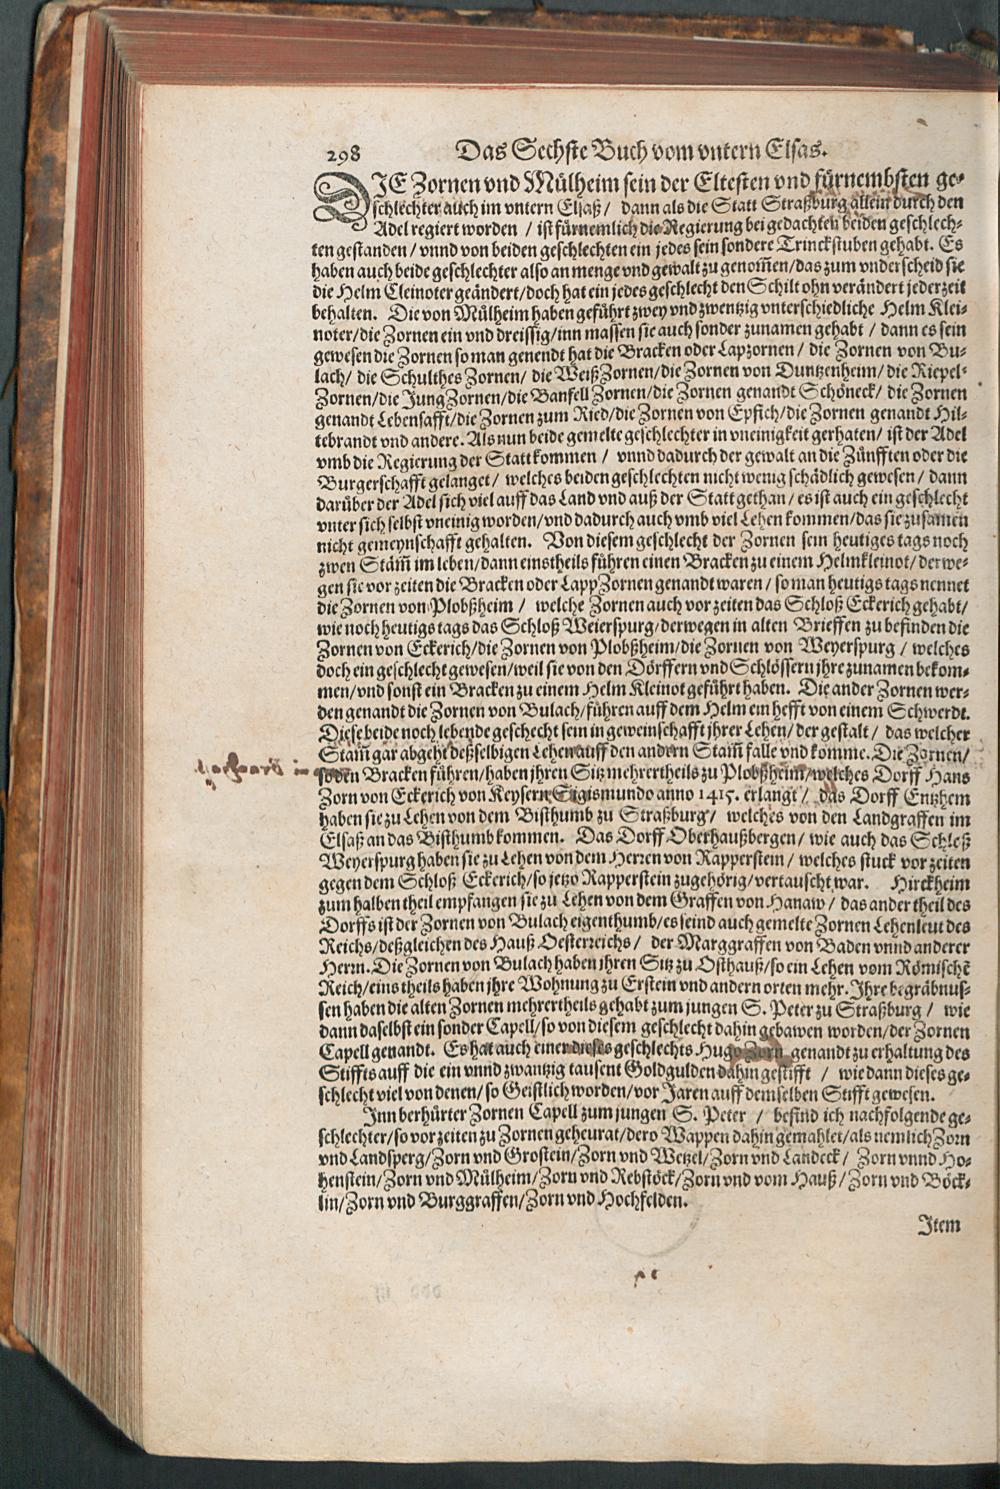 298 Das Sechste Buch vom vntern Elsas.
DIE Zornen vnd Mülheim sein der Eltesten vnd fürnembsten ge-
schlechter auch im vntern Elsaß / dann als die Statt Straßburg allein durch den
Adel regiert worden / ist fürnemlich die Regierung bei gedachten beiden geschlech-
ten gestanden / vnnd von beiden geschlechten ein jedes sein sondere Trinckstuben gehabt. Es
haben auch beide geschlechter also an menge vnd gewalt zu genom̃en/das zum vnderscheid sie
die Helm Cleinoter geändert/doch hat ein jedes geschlecht den Schilt ohn verändert jederzeit
behalten. Die von Mülheim haben geführt zwey vnd zwentzig vnterschiedliche Helm Klei-
noter/die Zornen ein vnd dreissig/inn massen sie auch sonder zunamen gehabt / dann es sein
gewesen die Zornen so man genendt hat die Bracken oder Lapzornen / die Zornen von Bu-
lach/ die Schulthes Zornen/ die Weiß Zornen/die Zornen von Duntzenheim/die Riepel-
Zornen/die Jung Zornen/die Banfell Zornen/die Zornen genandt Schöneck/ die Zornen
genandt Lebensafft/die Zornen zum Ried/die Zornen von Epfich/die Zornen genandt Hil-
tebrandt vnd andere. Als nun beide gemelte geschlechter in vneinigkeit gerhaten/ ist der Adel
vmb die Regierung der Statt kommen / vnnd dadurch der gewalt an die Zünfften oder die
Burgerschafft gelanget/ welches beiden geschlechten nicht wenig schädlich gewesen / dann
darüber der Adel sich viel auff das Land vnd auß der Statt gethan/ es ist auch ein geschlecht
vnter sich selbst vneinig worden/vnd dadurch auch vmb viel Lehen kommen/das sie zusamen
nicht gemeynschafft gehalten. Von diesem geschlecht der Zornen sein heutiges tags noch
zwen Stäm̃ im leben/dann einstheils führen einen Bracken zu einem Helmkleinot/derwe-
gen sie vor zeiten die Bracken oder Lapp Zornen genandt waren/ so man heutigs tags nennet
die Zornen von Plobßheim / welche Zornen auch vor zeiten das Schloß Eckerich gehabt/
wie noch heutigs tags das Schloß Weierspurg/derwegen in alten Brieffen zu befinden die
Zornen von Eckerich/die Zornen von Plobßheim/die Zornen von Weyerspurg / welches
doch ein geschlecht gewesen/weil sie von den Dörffern vnd Schlössern jhre zunamen bekom-
men/vnd sonst ein Bracken zu einem Helm Kleinot geführt haben. Die ander Zornen wer-
den genandt die Zornen von Bulach/führen auff dem Helm ein hefft von einem Schwerdt.
Diese beide noch lebende geschecht sein in gemeinschafft jhrer Lehen/ der gestalt / das welcher
Stam̃ gar abgeht deßselbigen Lehen auff den andern Stam̃ falle vnd komme. Die Zornen/
so den Bracken führen/haben jhren Sitz mehrertheils zu Plobßheim/welches Dorff Hans
Zorn von Eckerich von Keysern Sigismundo anno 1415. erlangt / das Dorff Entzhem
haben sie zu Lehen von dem Bisthumb zu Straßburg/ welches von den Landgraffen im
Elsaß an das Bisthumb kommen. Das Dorff Oberhaußbergen / wie auch das Schloß
Weyerspurg haben sie zu Lehen von dem Herren von Rapperstein / welches stuck vor zeiten
gegen dem Schloß Eckerich/so jetzo Rapperstein zugehörig/vertauscht war. Hirckheim
zum halben theil empfangen sie zu Lehen von dem Graffen von Hanaw / das ander theil des
Dorffs ist der Zornen von Bulach eigenthumb/es seind auch gemelte Zornen Lehenleut des
Reichs/deßgleichen des Hauß Oesterreichs / der Marggraffen von Baden vnnd anderer
Herrn. Die Zornen von Bulach haben jhren Sitz zu Osthauß/so ein Lehen vom Römischẽ
Reich/eins theils haben jhre Wohnung zu Erstein vnd andern orten mehr. Ihre begräbnus-
sen haben die alten Zornen mehrertheils gehabt zum jungen S. Peter zu Straßburg / wie
dann daselbst ein sonder Capell/so von diesem geschlecht dahin gebawen worden/der Zornen
Capell genandt. Es hat auch einer dieses geschlechts Hugo Zorn genandt zu erhaltung des
Stiffts auff die ein vnnd zwantzig tausent Goldgulden dahin gestifft / wie dann dieses ge-
schlecht viel von denen/so Geistlich worden/vor Jaren auff demselben Stifft gewesen.
Inn berhürter Zornen Capell zum jungen S. Peter / befind ich nachfolgende ge-
schlechter/so vor zeiten zu Zornen geheurat/dero Wappen dahin gemahlet/als nemlich Zorn
vnd Landsperg/Zorn vnd Grostein/Zorn vnd Wetzel/Zorn vnd Landeck/ Zorn vnnd Ho-
henstein/Zorn vnd Mülheim/Zorn vnd Rebstöck/Zorn vnd vom Hauß/Zorn vnd Böck-
lin/Zorn vnd Burggraffen/Zorn vnd Hochfelden.
Item